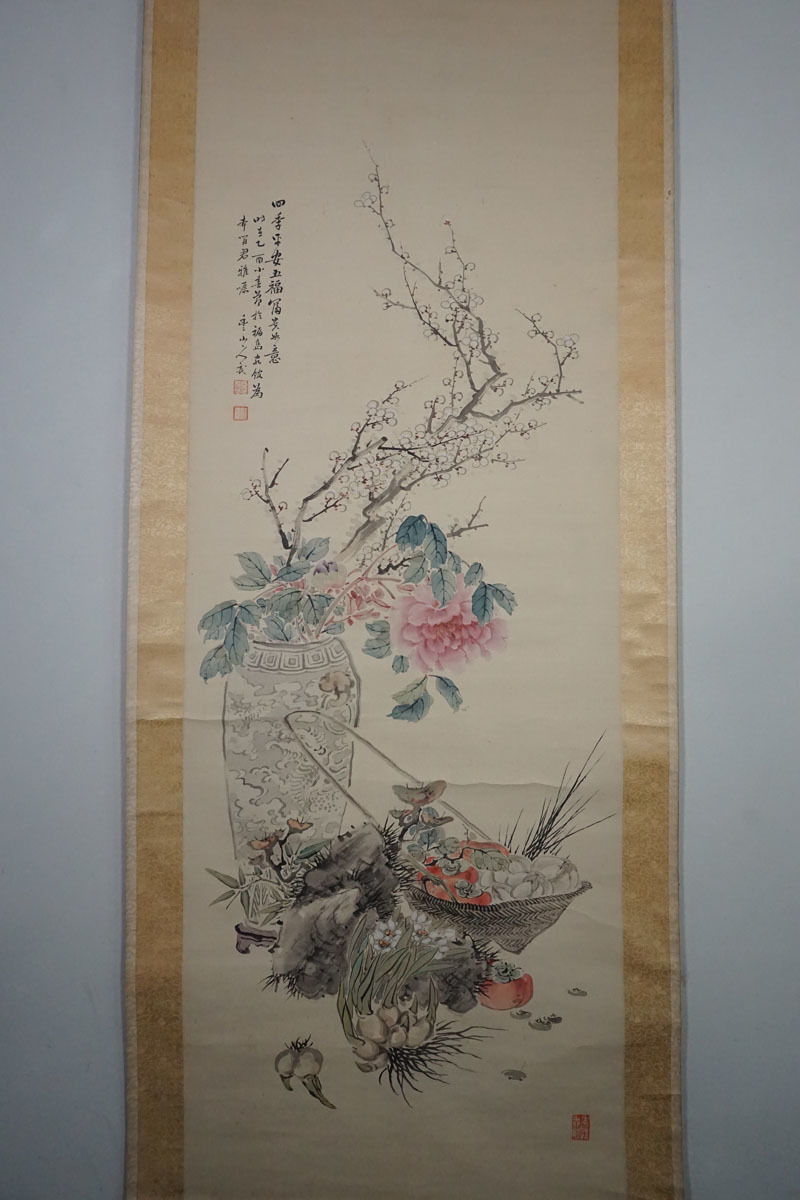 四季平安五福富貴如意
時在乙酉小春節於福島旅館為
本間君雅屬 山人